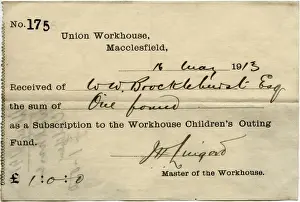 No. 175
Union Workhouse,
Macclesfield,
16 May 1913
Received of W. W. Brocklehurst Esq
the sum of One pound
as a Subscription to the Workhouse Children's Outing
Fund.
J H Lingard
£ 1:0:0 Master of the Workhouse.